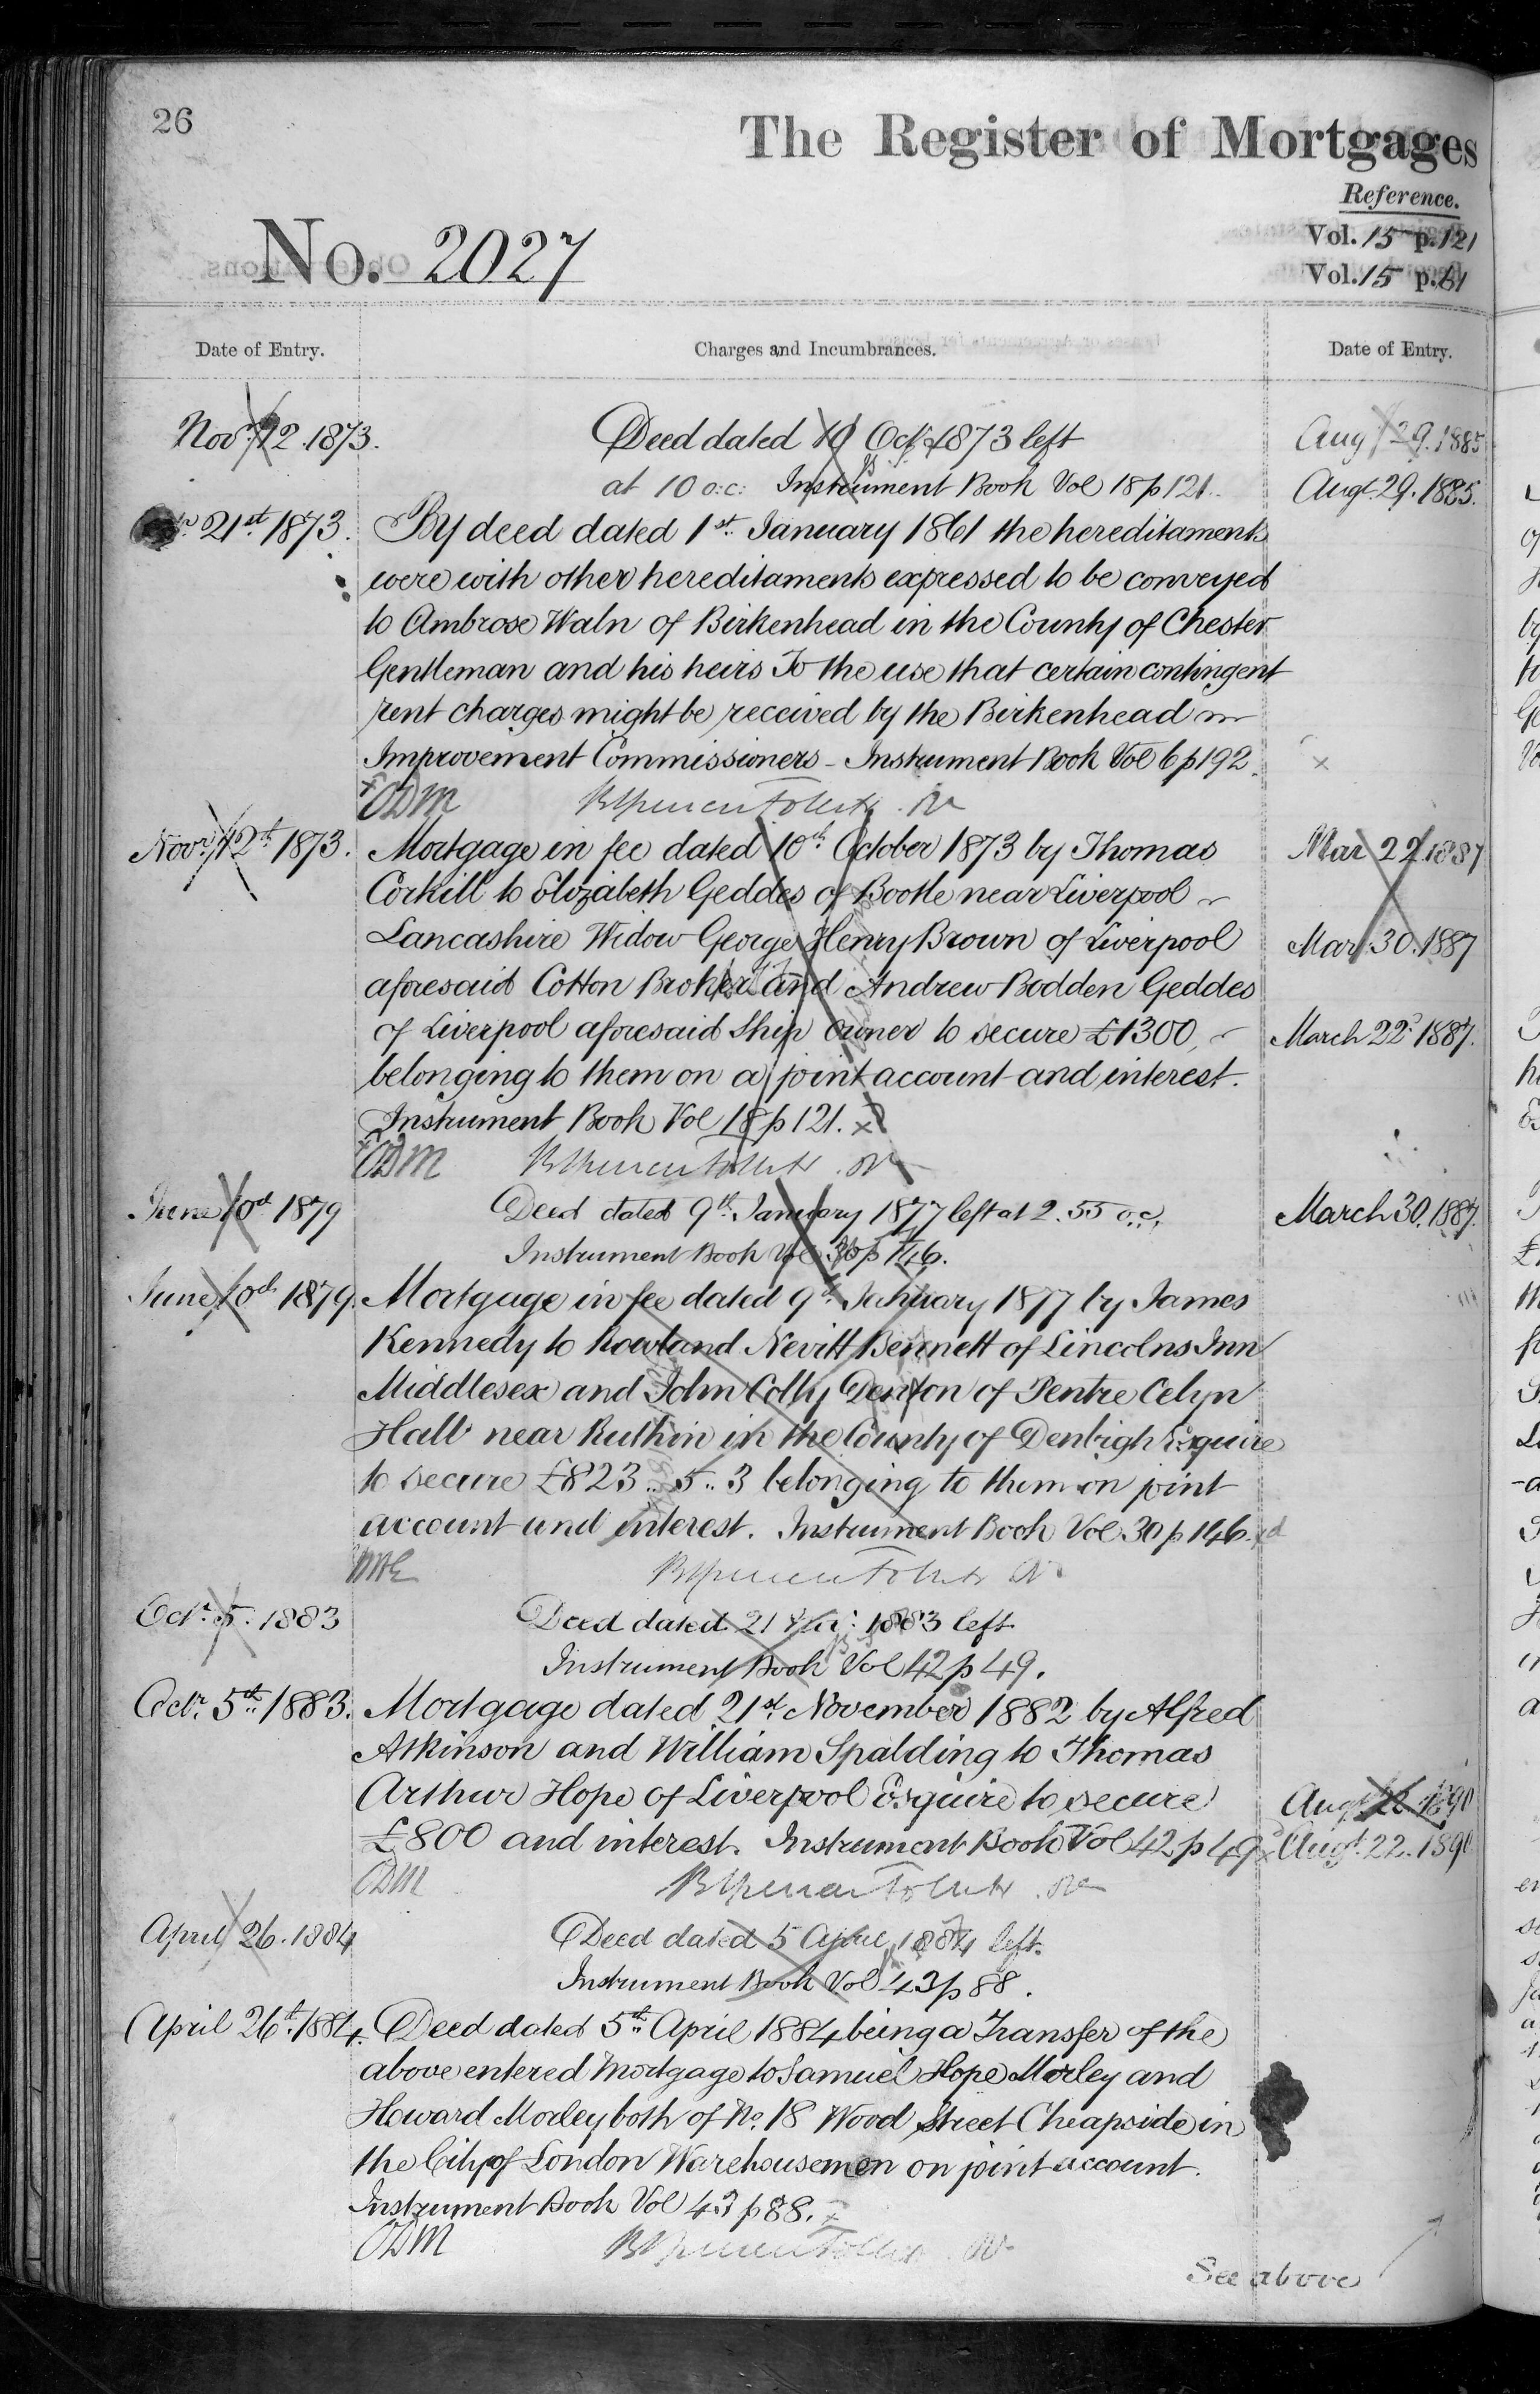 26
The Register of Mortgages
Reference.
No. 2027
Vol. 15 p. 121
Vol. 15 p. 61
Date of Entry.
Charges and Incumbrances.
Date of Entry.
Novr. 12. 1873.
Deed dated 10 Oct. 1873 left
at 10 o:c: Instrument Book Vol 18 p 121.
21st. 1873.
By deed dated 1st. January 1861 the hereditaments
were with other hereditaments expressed to be conveyed
to Ambrose Waln of Birkenhead in the County of Chester
Gentleman and his heirs To the use that certain contingent
rent charges might be received by the Birkenhead
Improvement Commissioners - Instrument Book Vol 6 p 192.
ODM
Novr. 12th 1873.
Mortgage in fee dated 10th. October 1873 by Thomas
Corkill to Elizabeth Geddes of Bootle near Liverpool
Lancashire Widow George Henry Brown of Liverpool
aforesaid Cotton Broker and Andrew Bodden Geddes
of Liverpool aforesaid Ship owner to secure £1300
belonging to them on a joint account and interest.
Instrument Book Vol 18 p 121.
ODM
June 1879
Deed dated 9th. January 1877 left at 2.55 o.c.
Instrument Book Vol 30 p 146.
June 1879.
Mortgage in fee dated 9th. January 1877 by James
Kennedy to Rowland Nevitt Bennett of Lincolns Inn
Middlesex and John Colly Denton of Pentre Celyn
Hall near Ruthin in the County of Denbigh Esquire
to secure £823..5..3 belonging to them on joint
account and interest. Instrument Book Vol 30 p 146.
Octr. 5. 1883
Deed dated 21 1883 left
Instrument Book Vol 42 p 49.
Octr. 5th. 1883.
Mortgage dated 21st. November 1882 by Alfred
Atkinson and William Spalding to Thomas
Arthur Hope of Liverpool Esquire to secure
£800 and interest. Instrument Book Vol 42 p 49
ODM
April 26. 1884
Deed dated 5 April 1884 left.
Instrument Book Vol 43 p 88.
April 26th. 1884.
Deed dated 5th. April 1884 being a Transfer of the
above entered Mortgage to Samuel Hope Morley and
Howard Morley both of No. 18 Wood Street Cheapside in
the City of London Warehousemen on joint account.
Instrument Book Vol 43 p 88.
ODM
Augt. 29. 1885
Augt. 29. 1885.
Mar 22 1887
Mar. 30. 1887
March 22d. 1887.
March 30. 1887.
Augt. 22 1890
Augt. 22. 1890
See above